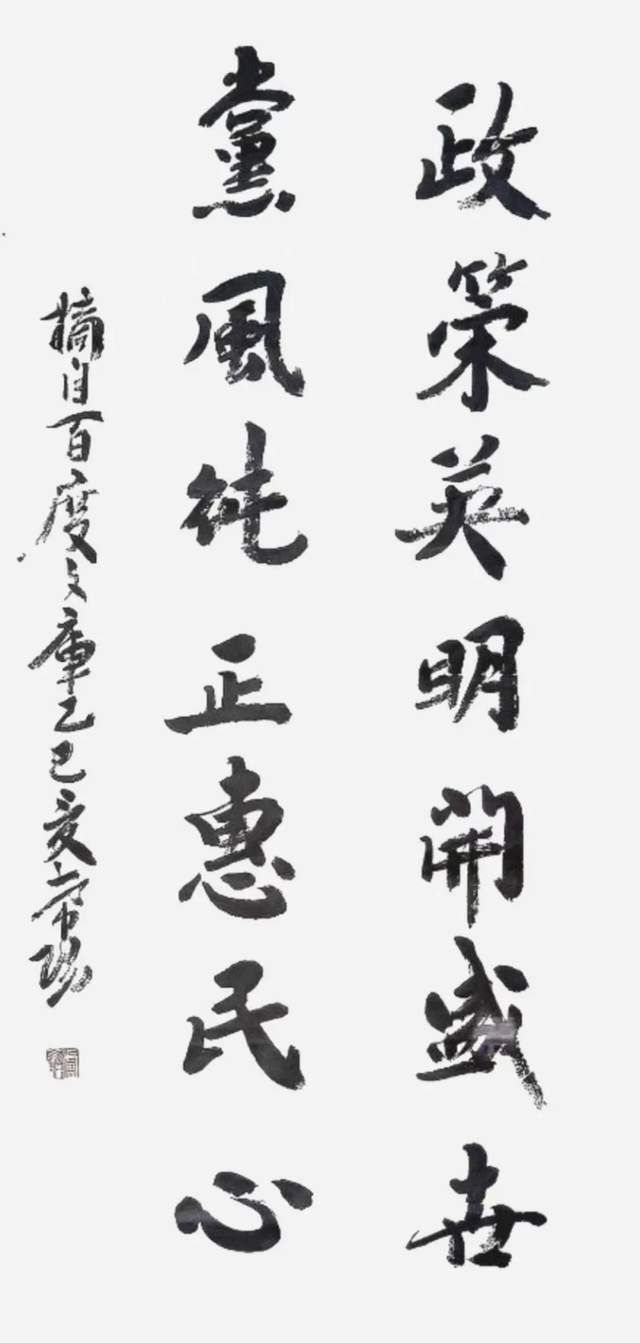 政策英明開盛世
黨風純正惠民心
摘自百度文庫乙巳夏